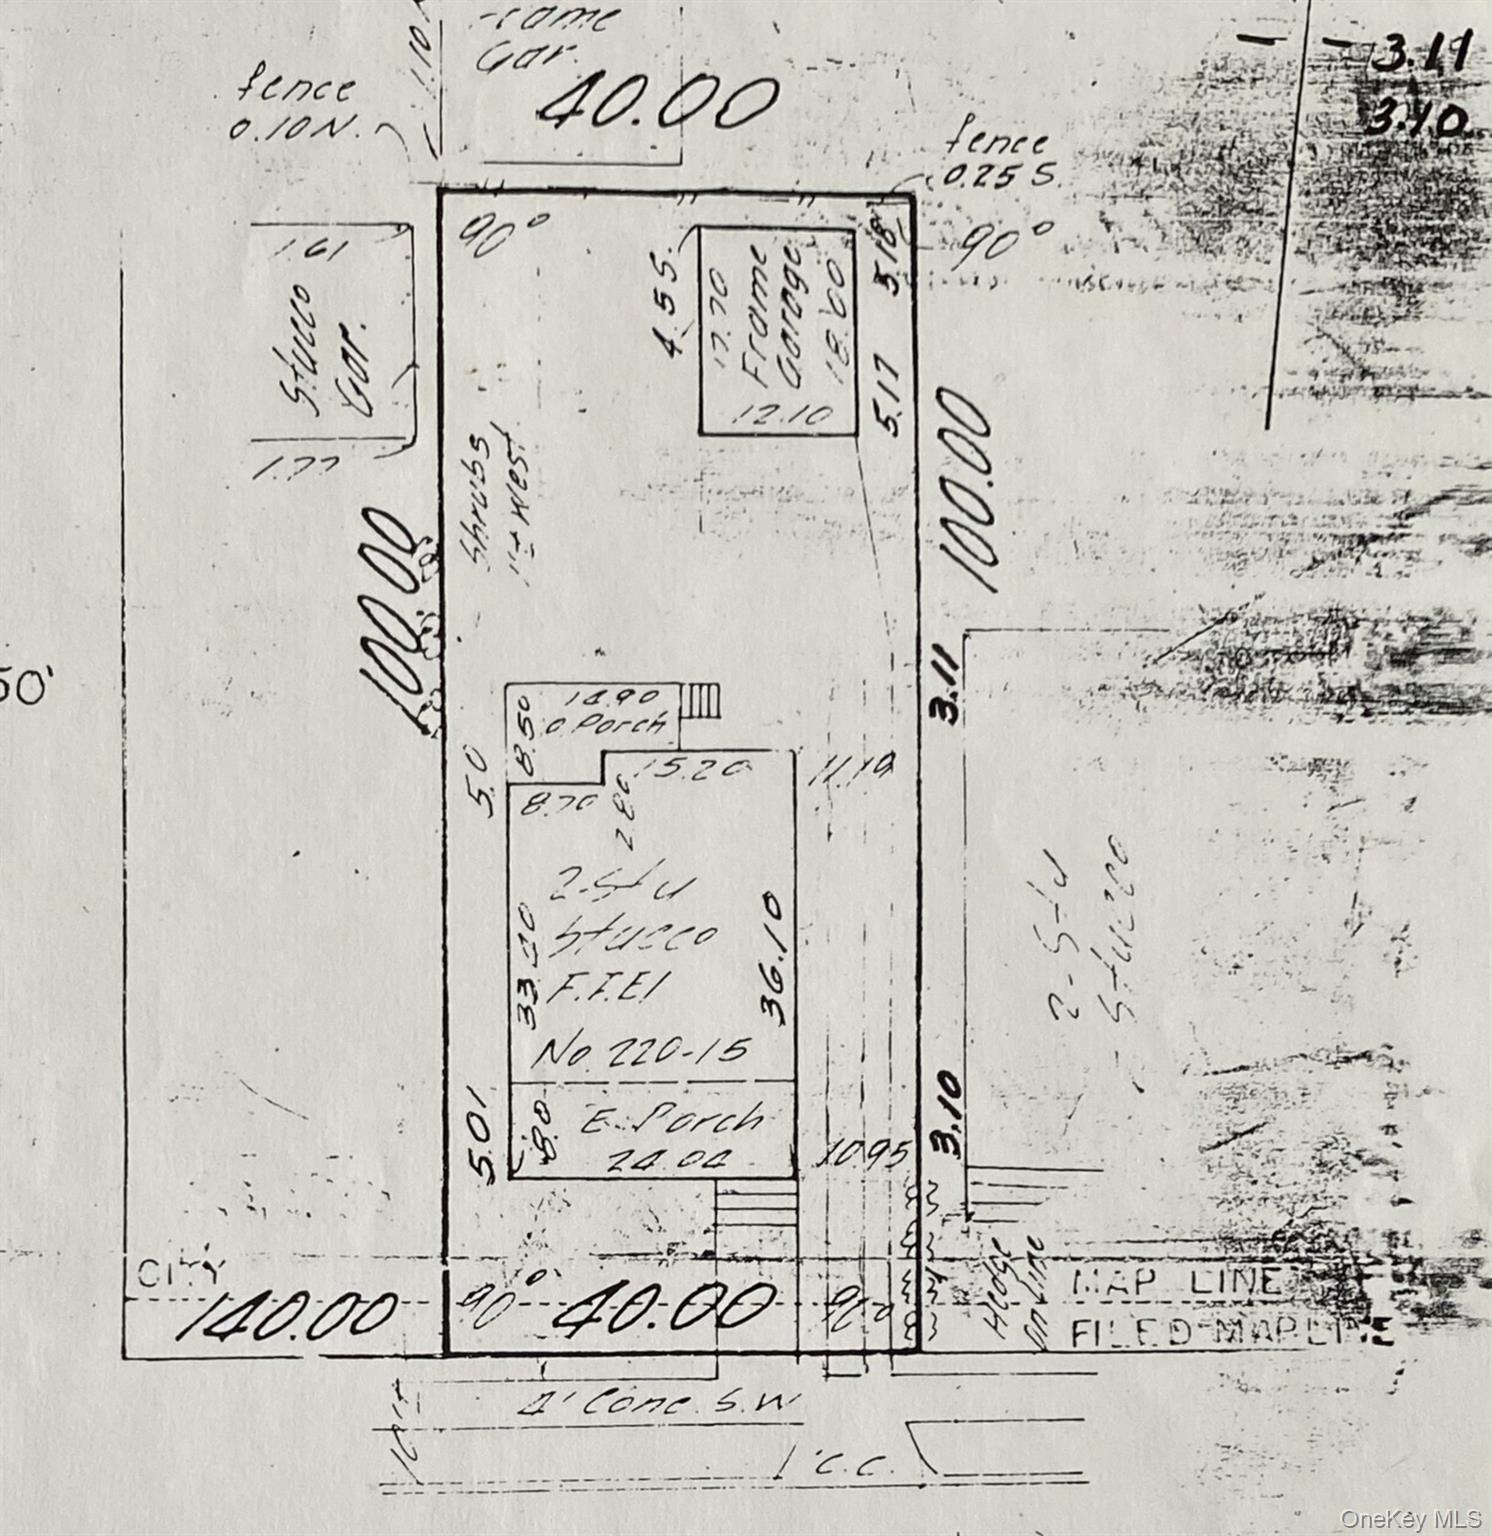 Gar.
40.00
3.11
3.10
fence
0.10 N.
fence
0.25 S.
90°
90°
1.61
Stucco
Gar.
1.77
4.55
17.70
Frame
Garage
18.00
12.10
3.18
5.17
100.00
100.00
Shrubs
1± West
50'
14.90
o Porch
8.50
15.20
11.19
3.11
5.0
8.70
2.80
2-Sty
Stucco
36.10
No. 220-15
E. Porch
24.04
8.0
5.01
10.95
3.10
2-Sty
Stucco
Hedge
on Line
CITY
MAP LINE
140.00
90°
40.00
FILED MAP LINE
4' Conc. S.W
C.C.
OneKey MLS